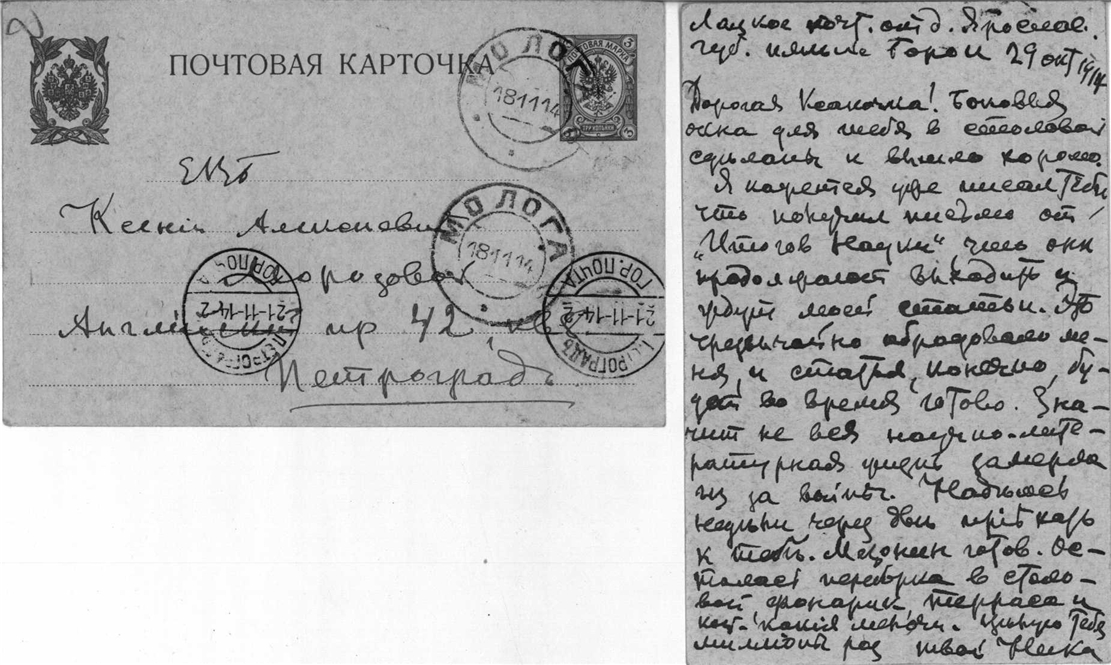 ПОЧТОВАЯ КАРТОЧКА
ПОЧТОВАЯ МАРКА
3
3 3
МОЛОГА
18 11 14
МОЛОГА
18 11 14
ЕВБ
Ксеніи Алексѣевнѣ
Морозовой
Англійскій пр 42, кв 2
Петроградъ
ПЕТРОГРАДЪ
21-11-14-2
ГОР. ПОЧТА
ПЕТРОГРАДЪ
21-11-14-2
ГОР. ПОЧТА
Лацкое почт. отд. Ярослав.
губ. имѣнье Борок 29 окт 1914
Дорогая Ксаночка! Боковыя
окна для тебя в столовой
сдѣланы и вышло хорошо.
Я кажется уже писал Тебѣ
что получил письмо от
"Итогов Науки", что они
продолжают выходить и
ждут моей статьи. Это
чрезвычайно обрадовало ме-
ня, и статья, конечно, бу-
дет во время готова. Зна-
чит не вся научно-лите-
ратурная жизнь замерла
из за войны. Надѣюсь
недѣли через двѣ пріѣхать
к тебѣ. Мезонин готов. Ос-
талась переборка в столо-
вой фонарик, терраса и
кой-какія мелочи. Цѣлую Тебя
милліоны раз твой Колька